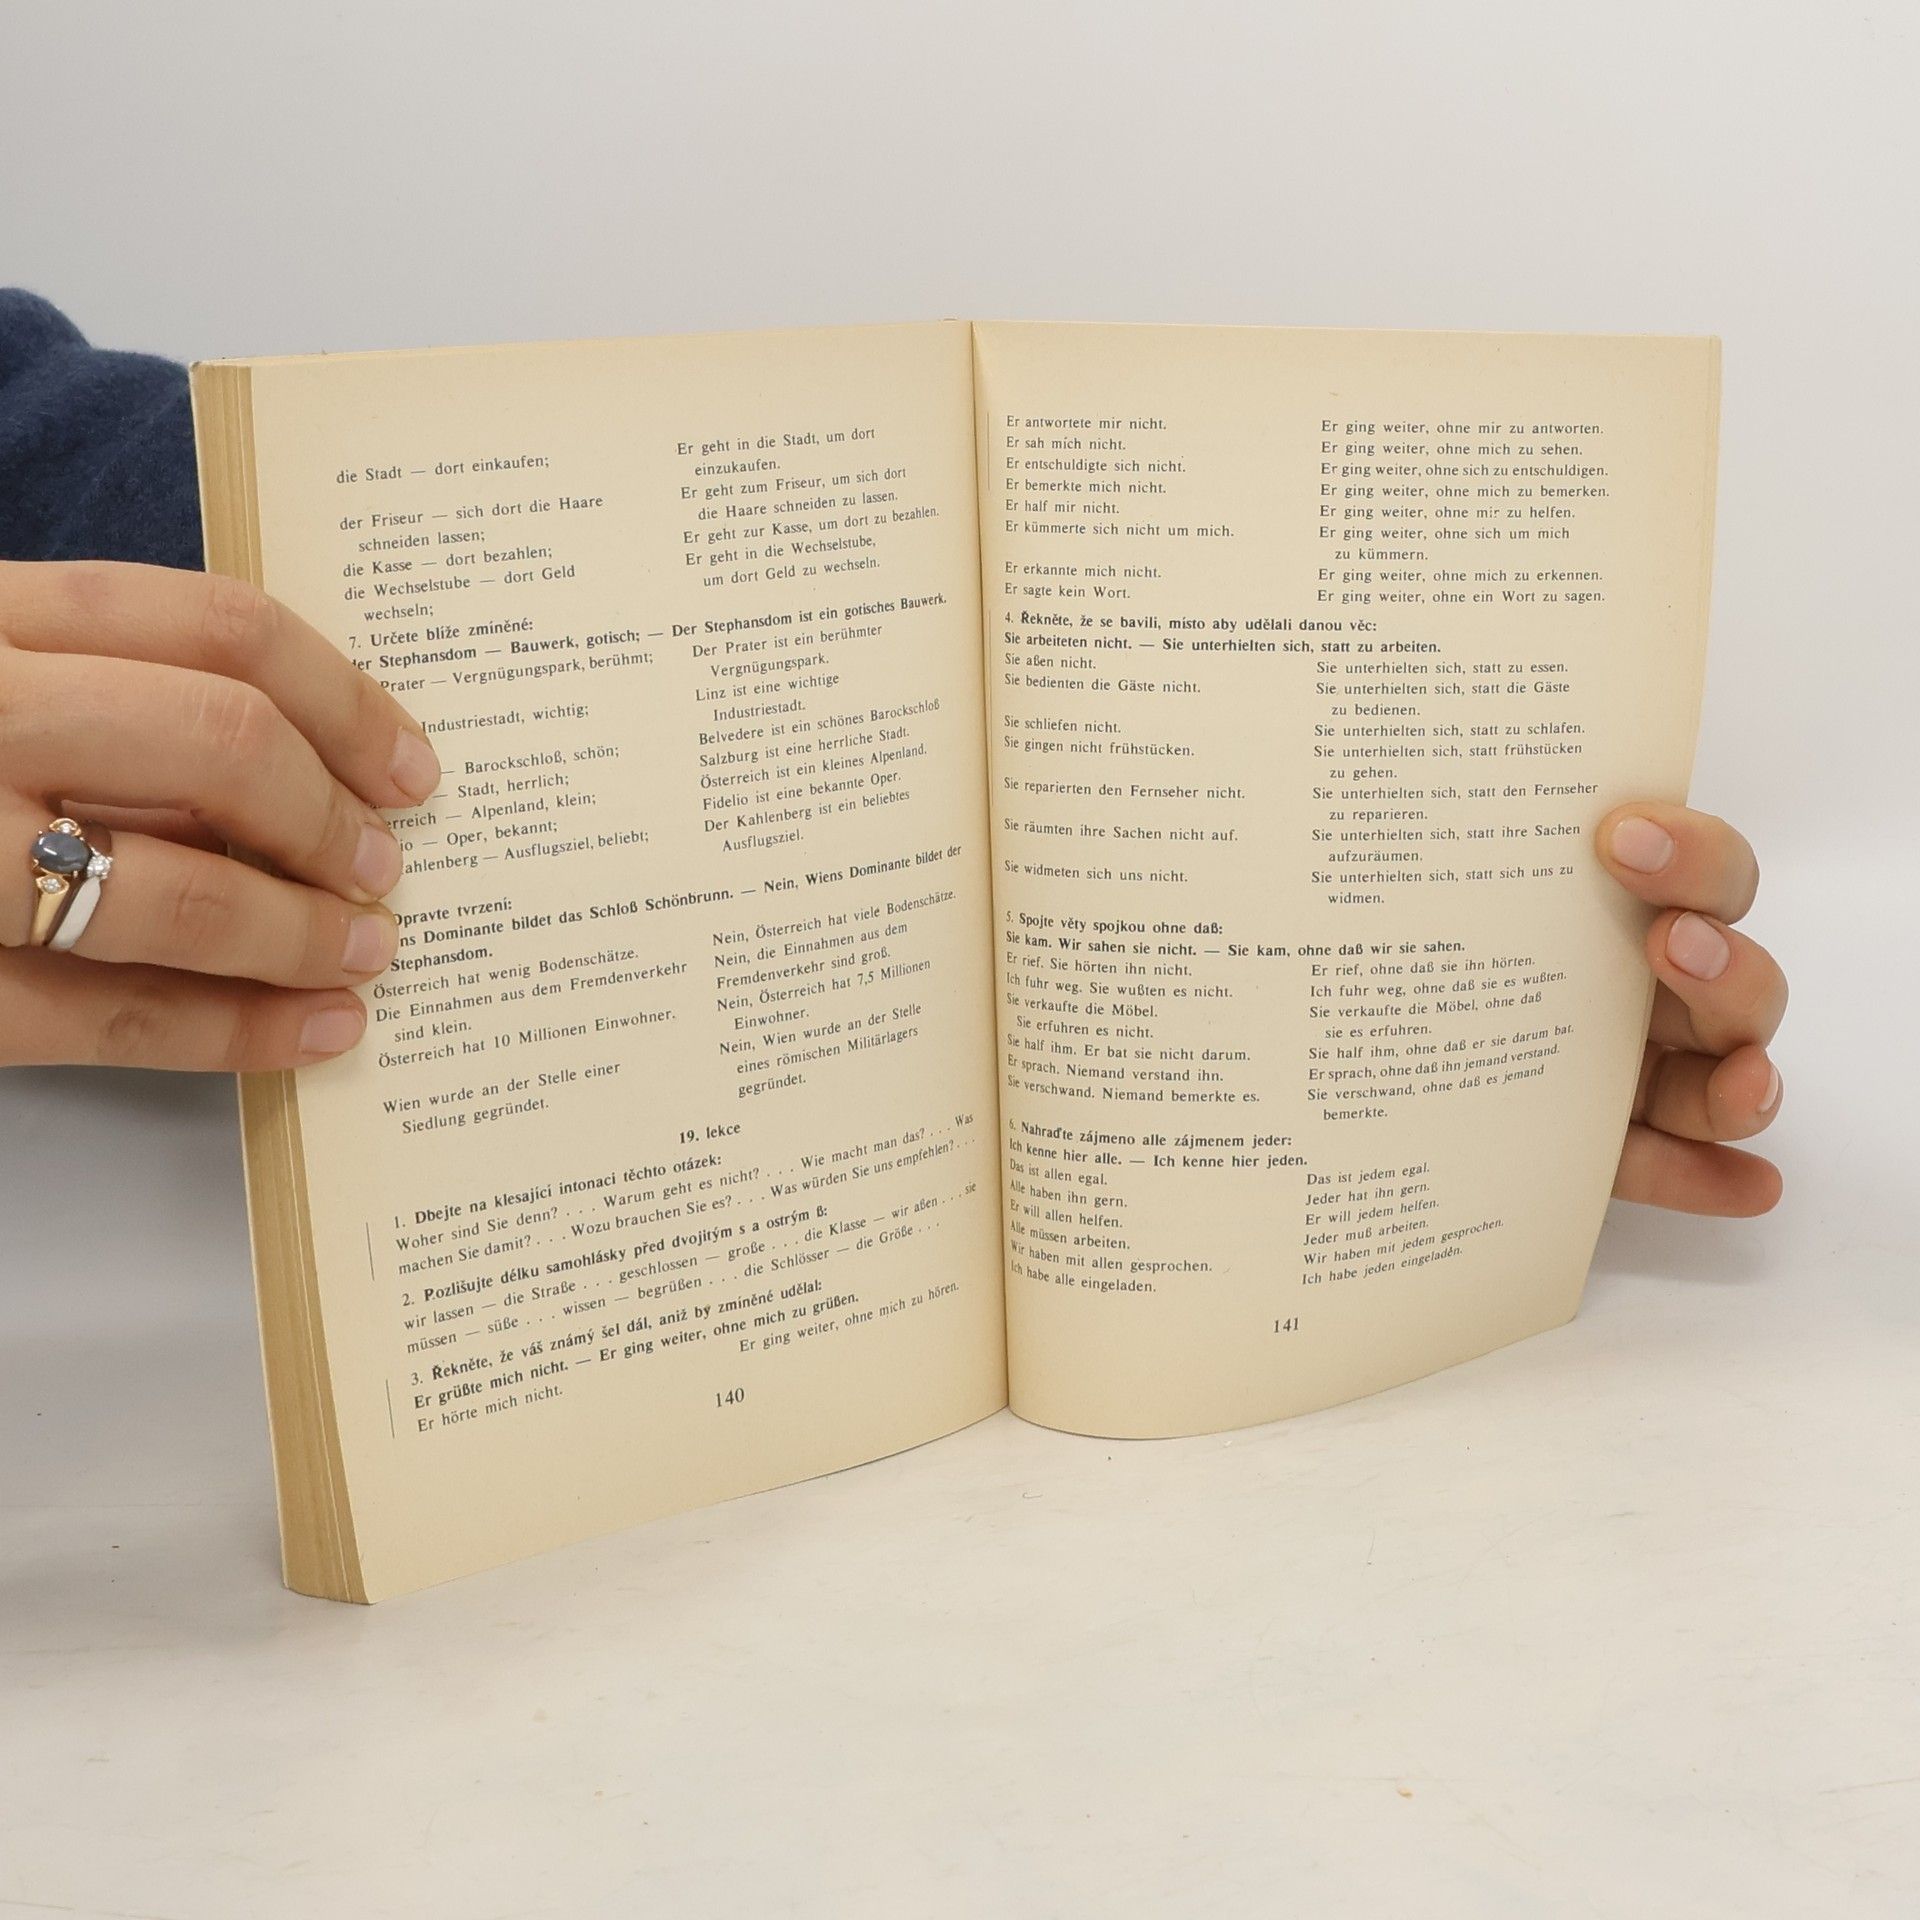 die Stadt — dort einkaufen;
der Friseur — sich dort die Haare
schneiden lassen;
die Kasse — dort bezahlen;
die Wechselstube — dort Geld
wechseln;
Er geht in die Stadt, um dort
einzukaufen.
Er geht zum Friseur, um sich dort
die Haare schneiden zu lassen.
Er geht zur Kasse, um dort zu bezahlen.
Er geht in die Wechselstube,
um dort Geld zu wechseln.
7. Určete blíže zmíněné:
der Stephansdom — Bauwerk, gotisch; — Der Stephansdom ist ein gotisches Bauwerk.
Prater — Vergnügungspark, berühmt;
Industriestadt, wichtig;
— Barockschloß, schön;
— Stadt, herrlich;
— Alpenland, klein;
— Oper, bekannt;
— Ausflugsziel, beliebt;
Der Prater ist ein berühmter
Vergnügungspark.
Linz ist eine wichtige
Industriestadt.
Belvedere ist ein schönes Barockschloß
Salzburg ist eine herrliche Stadt.
Österreich ist ein kleines Alpenland.
Fidelio ist eine bekannte Oper.
Der Kahlenberg ist ein beliebtes
Ausflugsziel.
Opravte tvrzení:
Dominante bildet das Schloß Schönbrunn. — Nein, Wiens Dominante bildet der
Stephansdom.
Österreich hat wenig Bodenschätze.
Die Einnahmen aus dem Fremdenverkehr
sind klein.
Österreich hat 10 Millionen Einwohner.
Wien wurde an der Stelle einer
Siedlung gegründet.
Nein, Österreich hat viele Bodenschätze.
Nein, die Einnahmen aus dem
Fremdenverkehr sind groß.
Nein, Österreich hat 7,5 Millionen
Einwohner.
Nein, Wien wurde an der Stelle
eines römischen Militärlagers
gegründet.
19. lekce
1. Dbejte na klesající intonaci těchto otázek:
Woher sind Sie denn? . . . Warum geht es nicht? . . . Wie macht man das? . . . Was
machen Sie damit? . . . Wozu brauchen Sie es? . . . Was würden Sie uns empfehlen? . . .
2. Rozlišujte délku samohlásky před dvojitým s a ostrým ß:
wir lassen — die Straße . . . geschlossen — große . . . die Klasse — wir aßen . . . sie
müssen — süße . . . wissen — begrüßen . . . die Schlösser — die Größe . . .
3. Řekněte, že váš známý šel dál, aniž by zmíněné udělal:
Er grüßte mich nicht. — Er ging weiter, ohne mich zu grüßen.
Er hörte mich nicht.
Er ging weiter, ohne mich zu hören.
140
Er antwortete mir nicht.
Er sah mich nicht.
Er entschuldigte sich nicht.
Er bemerkte mich nicht.
Er half mir nicht.
Er kümmerte sich nicht um mich.
Er erkannte mich nicht.
Er sagte kein Wort.
Er ging weiter, ohne mir zu antworten.
Er ging weiter, ohne mich zu sehen.
Er ging weiter, ohne sich zu entschuldigen.
Er ging weiter, ohne mich zu bemerken.
Er ging weiter, ohne mir zu helfen.
Er ging weiter, ohne sich um mich
zu kümmern.
Er ging weiter, ohne mich zu erkennen.
Er ging weiter, ohne ein Wort zu sagen.
4. Řekněte, že se bavili, místo aby udělali danou věc:
Sie arbeiteten nicht. — Sie unterhielten sich, statt zu arbeiten.
Sie aßen nicht.
Sie bedienten die Gäste nicht.
Sie schliefen nicht.
Sie gingen nicht frühstücken.
Sie reparierten den Fernseher nicht.
Sie räumten ihre Sachen nicht auf.
Sie widmeten sich uns nicht.
Sie unterhielten sich, statt zu essen.
Sie unterhielten sich, statt die Gäste
zu bedienen.
Sie unterhielten sich, statt zu schlafen.
Sie unterhielten sich, statt frühstücken
zu gehen.
Sie unterhielten sich, statt den Fernseher
zu reparieren.
Sie unterhielten sich, statt ihre Sachen
aufzuräumen.
Sie unterhielten sich, statt sich uns zu
widmen.
5. Spojte věty spojkou ohne daß:
Sie kam. Wir sahen sie nicht. — Sie kam, ohne daß wir sie sahen.
Er rief. Sie hörten ihn nicht.
Ich fuhr weg. Sie wußten es nicht.
Sie verkaufte die Möbel.
Sie erfuhren es nicht.
Sie half ihm. Er bat sie nicht darum.
Er sprach. Niemand verstand ihn.
Sie verschwand. Niemand bemerkte es.
Er rief, ohne daß sie ihn hörten.
Ich fuhr weg, ohne daß sie es wußten.
Sie verkaufte die Möbel, ohne daß
sie es erfuhren.
Sie half ihm, ohne daß er sie darum bat.
Er sprach, ohne daß ihn jemand verstand.
Sie verschwand, ohne daß es jemand
bemerkte.
6. Nahraďte zájmeno alle zájmenem jeder:
Ich kenne hier alle. — Ich kenne hier jeden.
Das ist allen egal.
Alle haben ihn gern.
Er will allen helfen.
Alle müssen arbeiten.
Wir haben mit allen gesprochen.
Ich habe alle eingeladen.
Das ist jedem egal.
Jeder hat ihn gern.
Er will jedem helfen.
Jeder muß arbeiten.
Wir haben mit jedem gesprochen.
Ich habe jeden eingeladen.
141